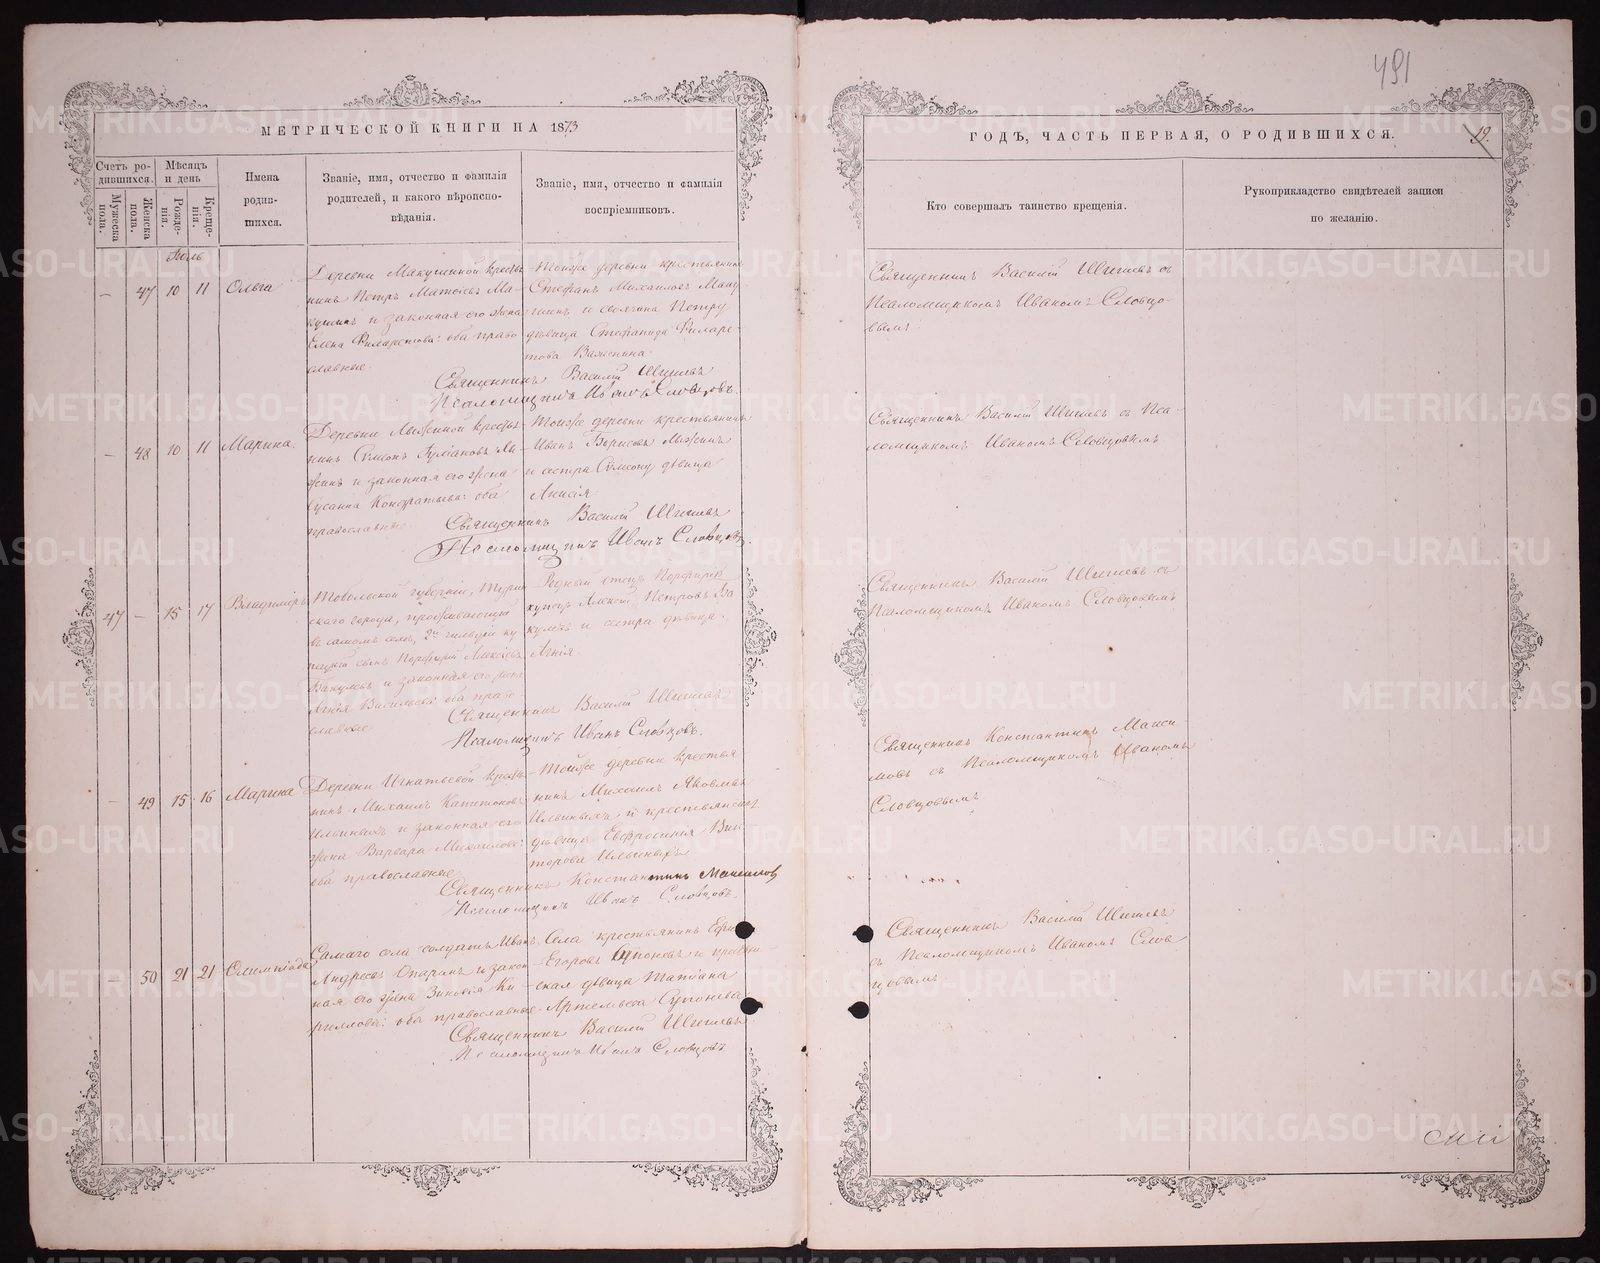 491
МЕТРИЧЕСКОЙ КНИГИ НА 1873
ГОДЪ, ЧАСТЬ ПЕРВАЯ, О РОДИВШИХСЯ.
19.
Счетъ ро-
дившихся.
Мужеска
пола.
Женска
пола.
Мѣсяцъ
и день
Рожде-
нія.
Креще-
нія.
Имена
родив-
шихся.
Званіе, имя, отчество и фамилія
родителей, и какого вѣроиспо-
вѣданія.
Званіе, имя, отчество и фамилія
воспріемниковъ.
Кто совершалъ таинство крещенія.
Рукоприкладство свидѣтелей записи
по желанію.
Іюль
— 47 10 11 Ольга
Деревни Макушиной крестья
нинъ Петръ Матвіевъ Ма-
кушинъ и законная его жена
Елена Филаретова: оба право
славные.
Тойже деревни крестьянинъ
Стефанъ Михаиловъ Маку
шинъ и своячина Петру
дѣвица Стефанида Филаре-
това
Священникъ Василій
Псаломщикъ Иванъ Словцовъ.
Священникъ Василій съ
Псаломщикомъ Иваномъ Словцо-
вымъ
— 48 10 11 Марина.
Деревни крестья
нинъ Симеонъ
и законная его жена
Сусанна Кондратьева: оба
православные
Тойже деревни крестьянинъ
Иванъ Борисовъ
и сестра Симеону дѣвица
Анисія
Священникъ Василій
Псаломщикъ Иванъ Словцовъ.
Священникъ Василій съ Пса-
ломщикомъ Иваномъ Словцовымъ
47 — 15 17 Владиміръ
Тобольской губерніи, Турин
скаго города, проживающій
въ самомъ селѣ, 2й гильдіи ку
пецкій сынъ Порфирій Алексіевъ
и законная его жена
Васильева: оба право
славные
Родный отецъ Порфирія
купецъ Алексій Петровъ
и сестра дѣвица.
Священникъ Василій
Псаломщикъ Иванъ Словцовъ.
Священникъ Василій съ
Псаломщикомъ Иваномъ Словцовымъ
— 49 15 16 Марина
Деревни Игнатьевой крестья
нинъ Михаилъ
Ильиныхъ и законная его
жена Варвара Михаилова:
оба православные
Тойже деревни крестья
нинъ Михаилъ Яковлевъ
Ильиныхъ и крестьянская
дѣвица Евфросинія Вик
торова Ильиныхъ
Священникъ Константинъ Максимовъ
Псаломщикъ Иванъ Словцовъ.
Священникъ Константинъ Макси
мовъ съ Псаломщикомъ Иваномъ
Словцовымъ
— 50 21 21 Олимпіада
Самаго села солдатъ Иванъ
Андреевъ Опаринъ и закон
ная его жена Зиновія Ки
риллова: оба православные
Села крестьянинъ
Егоровъ Супоневъ и
ская дѣвица Татіана
Артемьева Супонева
Священникъ Василій
Псаломщикъ Иванъ Словцовъ
Священникъ Василій
съ Псаломщикомъ Иваномъ Слов
цовымъ
METRIKI.GASO-URAL.RU